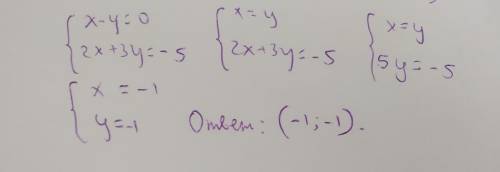 x-y=0 x=y x=y
2x+3y=-5 2x+3y=-5 5y=-5
x =-1
y=-1 Ответ: (-1;-1).